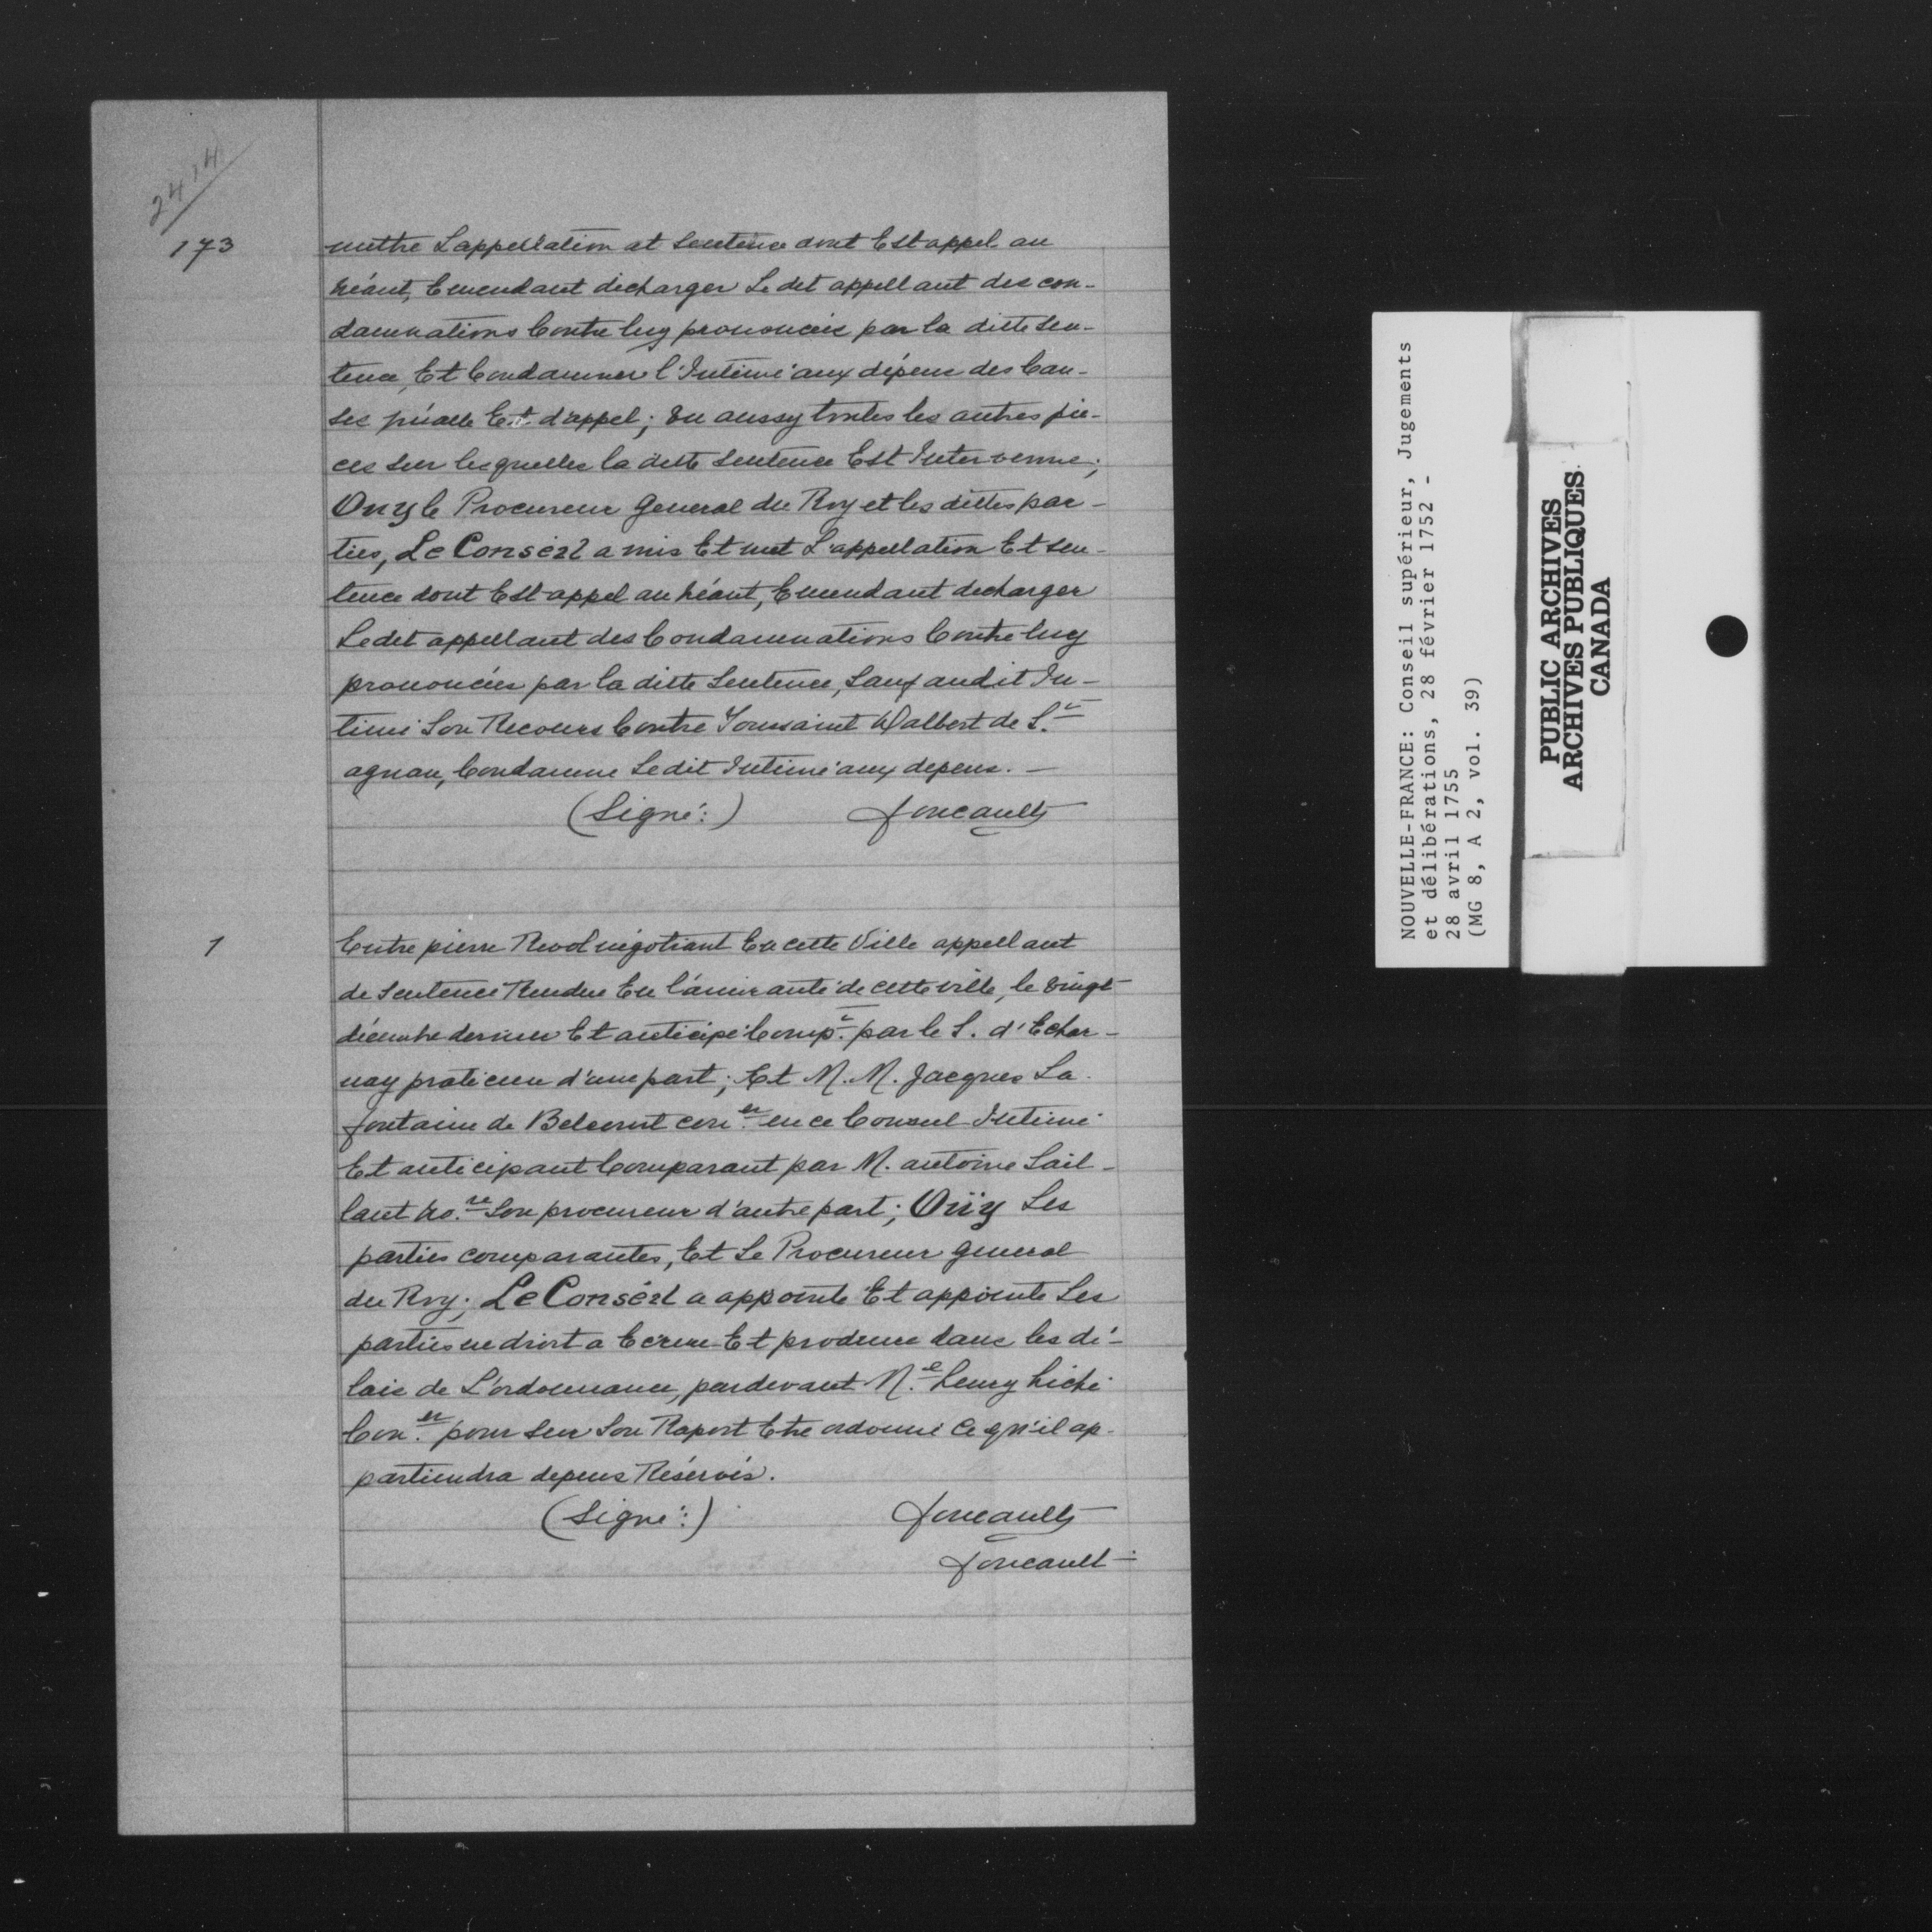 2414
173
mettre L'appellation et sentence dont Est appel au
néant, Emendant décharger Le dit appellant des con-
damnations Contre luy prononcées par la ditte sen-
tence, Et Condamner l'Intimé aux dépens des Cau-
ses p'ncalle Et d'appel; vu aussy toutes les autres pie-
ces sur lesquelles la ditte sentence Est Intervenue;
Ouy le Procureur General du Roy et les dittes par-
ties, Le Conseil a mis Et met L'appellation Et sen-
tence dont Est appel au néant, Emendant decharger
Ledit appellant des Condamnations Contre luy
prononcées par la ditte Sentence, Sauf audit In-
timé Son Recours Contre Toussaint Walbert de St.
agnan, Condamne Ledit Intimé aux depens. —
(Signé:) foucault
1
Entre pierre Revol négotiant En cette Ville appellant
de Sentence Rendue En l'amirauté de cette ville, le vingt
décembre dernier Et anticipé Comp.t par le S. d'Echar-
nay praticien d'une part; Et M. M. Jacques La-
fontaine de Belcourt con.er en ce Conseil Intimé
Et anticipant Comparant par M. antoine Sail-
lant no.re Son procureur d'autre part; Oüy Les
parties comparantes, Et Le Procureur General
du Roy; Le Conseil a appointé Et appointe Les
parties en droit a Ecrire Et produire dans les dé-
lais de L'ordonnance, pardevant M.e henry hiché
Con.er pour sur Son Raport Etre ordonné Ce qu'il ap-
partiendra depens Réservés.
(Signé:) foucault
foucault
NOUVELLE-FRANCE: Conseil supérieur, Jugements
et délibérations, 28 février 1752 -
28 avril 1755
(MG 8, A 2, vol. 39)
PUBLIC ARCHIVES
ARCHIVES PUBLIQUES
CANADA